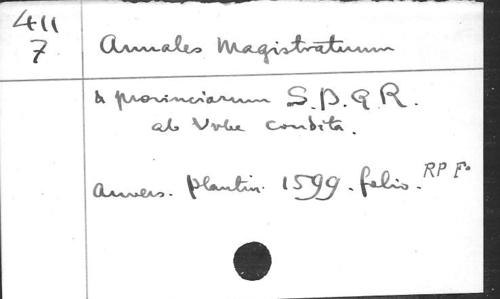 411
7
Annales Magistratuum
& provinciarum S.P.Q.R.
ab Urbe condita.
Anvers. Plantin. 1599. folio. RP F°